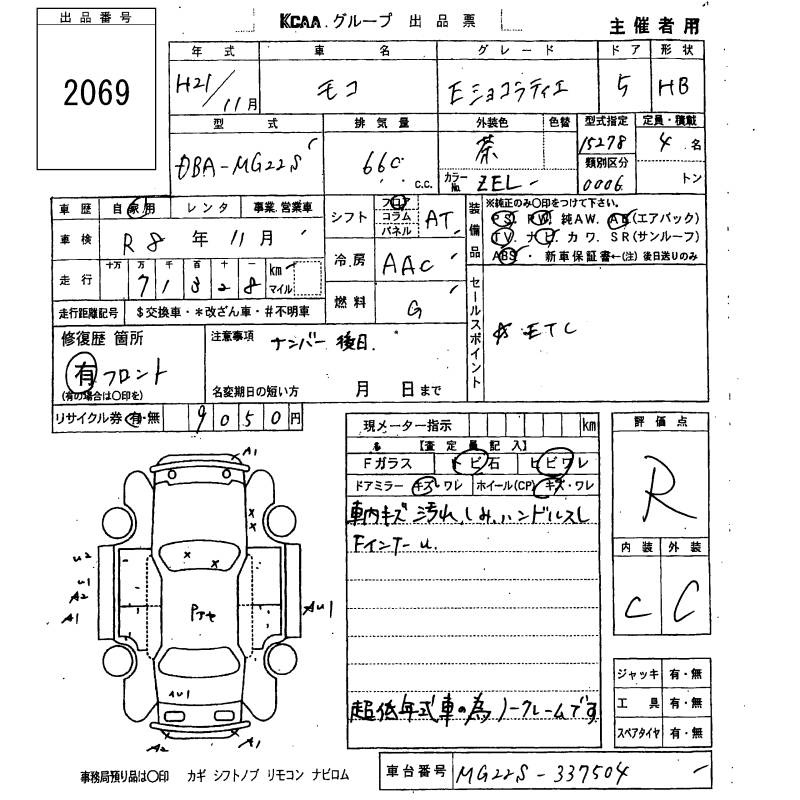 出品番号
2069
KCAA.グループ 出品票
主催者用
年式 車名 グレード ドア 形状
H21/11月 モコ Eショコラティエ 5 HB
型式 排気量 外装色 色替 型式指定 定員・積載
0BA-MG22S 660 c.c. 茶 15278 4名
カラーNo. ZEL 類別区分 0006 トン
車歴 自家用 レンタ 事業.営業車
車検 R8年11月
走行 十万 万 千 百 十 一 km マイル
71328
走行距離記号 $交換車・*改ざん車・#不明車
シフト フロア コラム パネル AT
冷房 AAC
燃料 G
装備品 ※純正のみ〇印をつけて下さい。
PS. PW. 純AW. AB(エアバック)
TV. ナビ カワ. SR(サンルーフ)
ABS・新車保証書←(注)後日送りのみ
セールスポイント
ETC
修復歴 箇所
有 フロント
(有の場合は〇印を)
注意事項 ナンバー後日.
名変期日の短い方 月 日まで
リサイクル券 有・無 9050円
現メーター指示 km
【査定員記入】
Fガラス トビ石 ヒビワレ
ドアミラー キズ・ワレ ホイール(CP) キズ・ワレ
車内キズ 汚れ.しみ.ハンドルスレ
FインナーU.
超低年式車の為ノークレームです
評価点
R
内装 外装
C C
A1
U2
U1
A2
A1
AU1
AU1
A2
A1
ジャッキ 有・無
工具 有・無
スペアタイヤ 有・無
事務局預り品は〇印 カギ シフトノブ リモコン ナビロム
車台番号 MG22S-337504